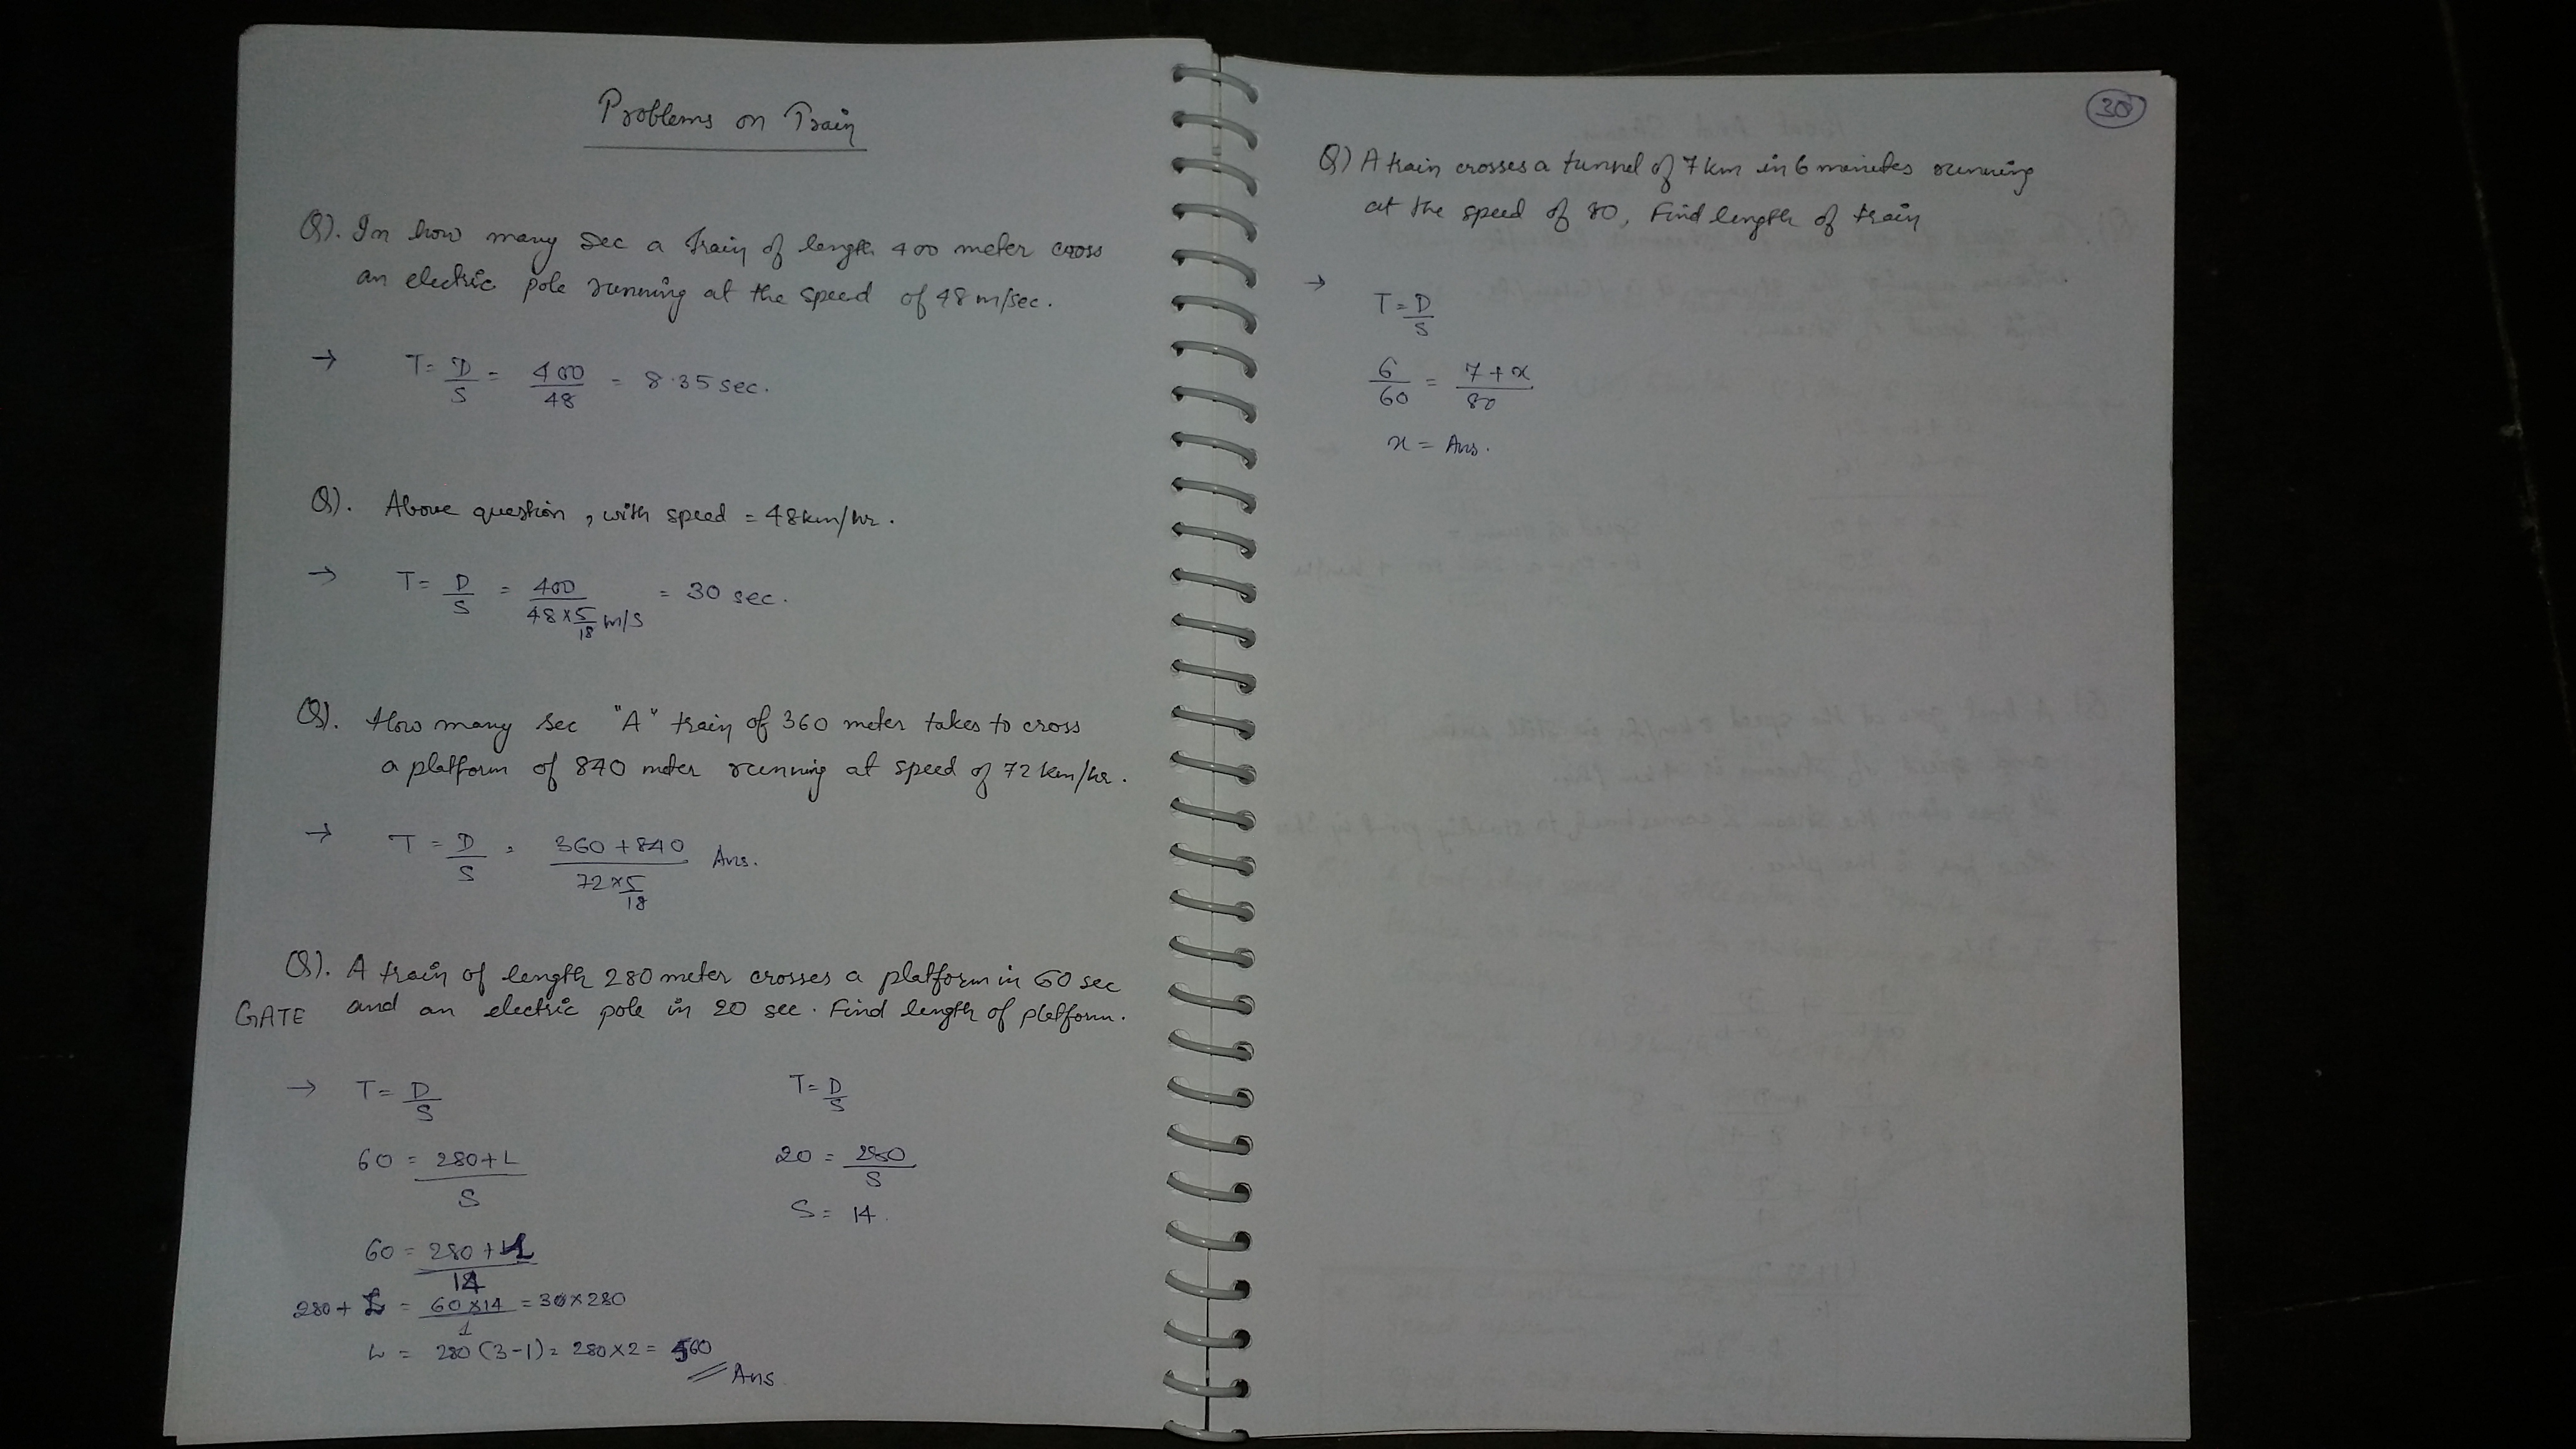 Problems on Train
Q). In how many sec a train of length 400 meter cross
an electric pole running at the speed of 48 m/sec.
→ T = D/S = 400/48 = 8.35 sec.
Q). Above question, with speed = 48km/hr.
→ T = D/S = 400/(48×5/18 m/s) = 30 sec.
Q). How many sec "A" train of 360 meter takes to cross
a platform of 840 meter running at speed of 72 km/hr.
→ T = D/S = (360+840)/(72×5/18) Ans.
Q). A train of length 280 meter crosses a platform in 60 sec
GATE and an electric pole in 20 sec. Find length of platform.
→ T = D/S T = D/S
60 = (280+L)/S 20 = 280/S
S = 14.
60 = (280+L)/14
280+L = (60×14)/1 = 3×280
L = 280(3-1) = 280×2 = 560
Ans.
30
Q) A train crosses a tunnel of 7 km in 6 minutes running
at the speed of 80, Find length of train
→
T = D/S
6/60 = (7+x)/80
x = Ans.